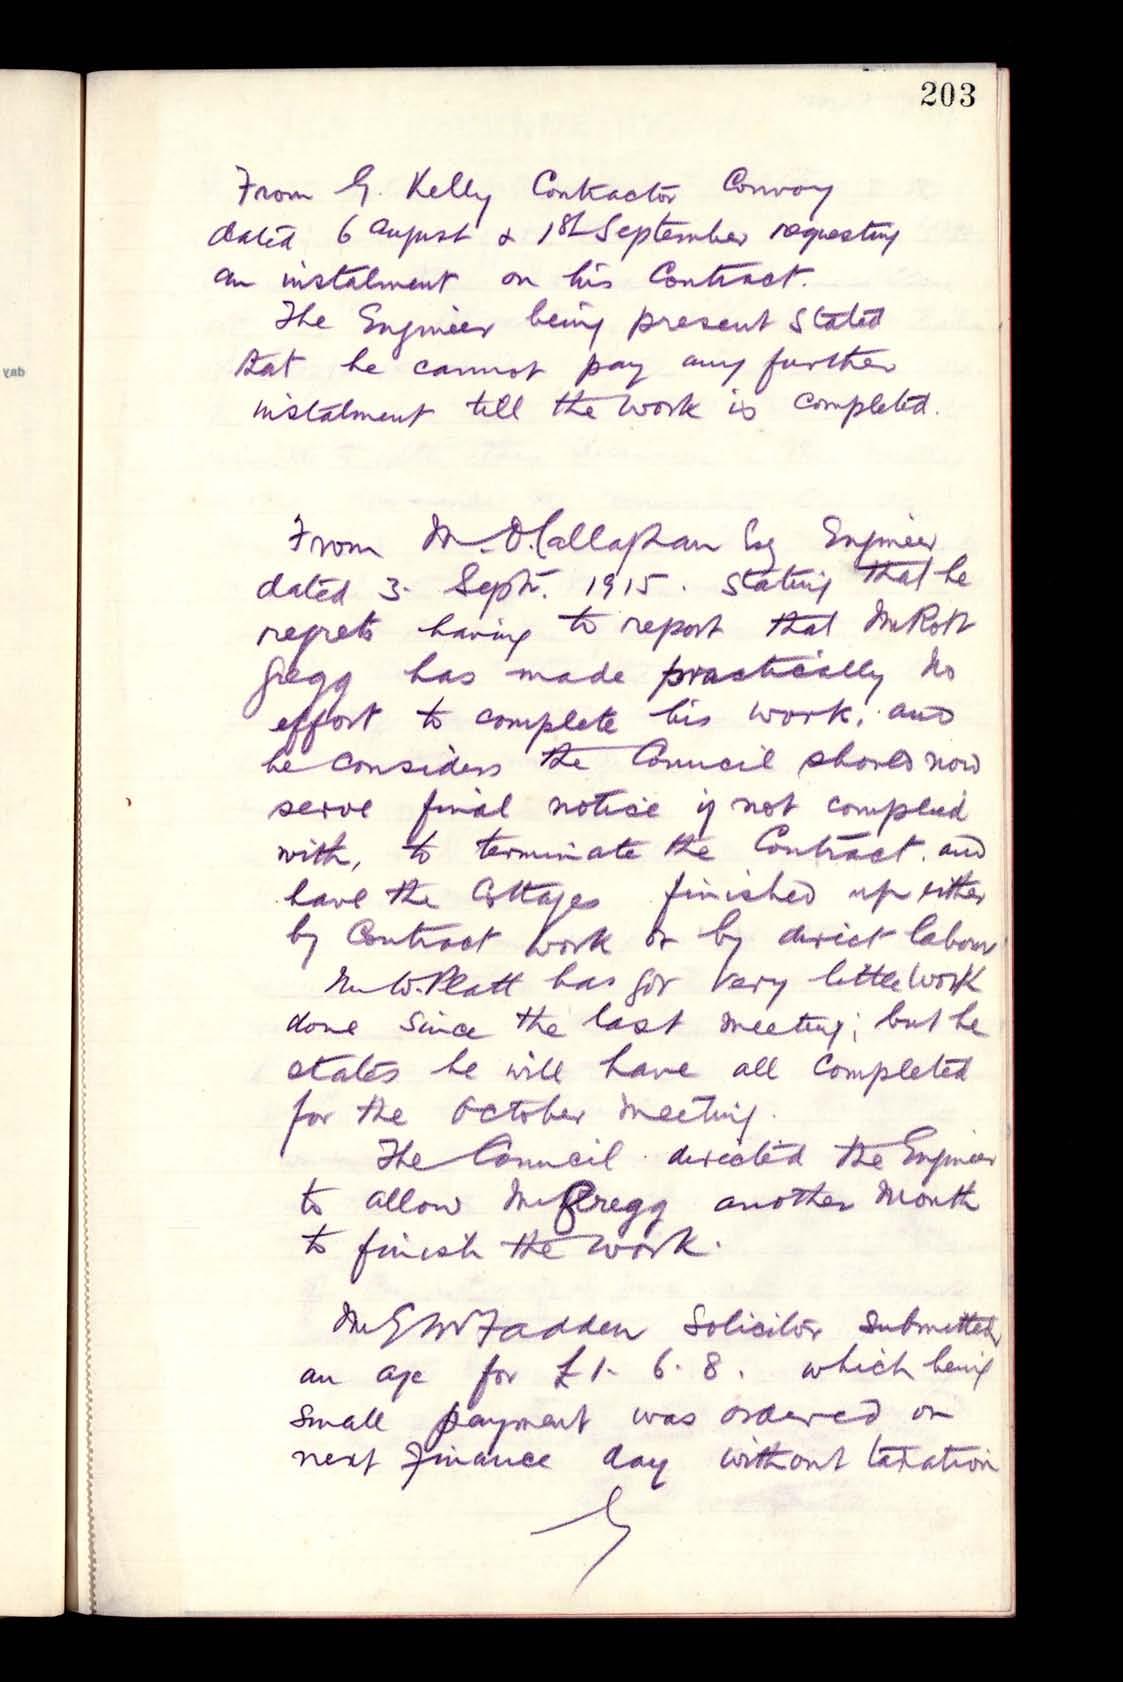 203
From G. Kelly Contractor Convoy
dated 6 August & 1st September requesting
an instalment on his Contract.
The Engineer being present stated
that he cannot pay any further
instalment till the work is completed.
From M. O'Callaghan Esq Engineer
dated 3. Septr. 1915. Stating that he
regrets having to report that Mr Robt
Gregg has made practically no
effort to complete his work, and
he considers the Council should now
serve final notice if not complied
with, to terminate the Contract. and
have the Cottages finished up either
by Contract work or by direct labour
Mr W. Platt has got very little work
done since the last meeting; but he
states he will have all completed
for the October meeting.
The Council directed the Engineer
to allow Mr Gregg another month
to finish the work.
Mr E McFadden Solicitor submitted
an a/c for £1. 6. 8. which being
small payment was ordered on
next Finance day without taxation
day